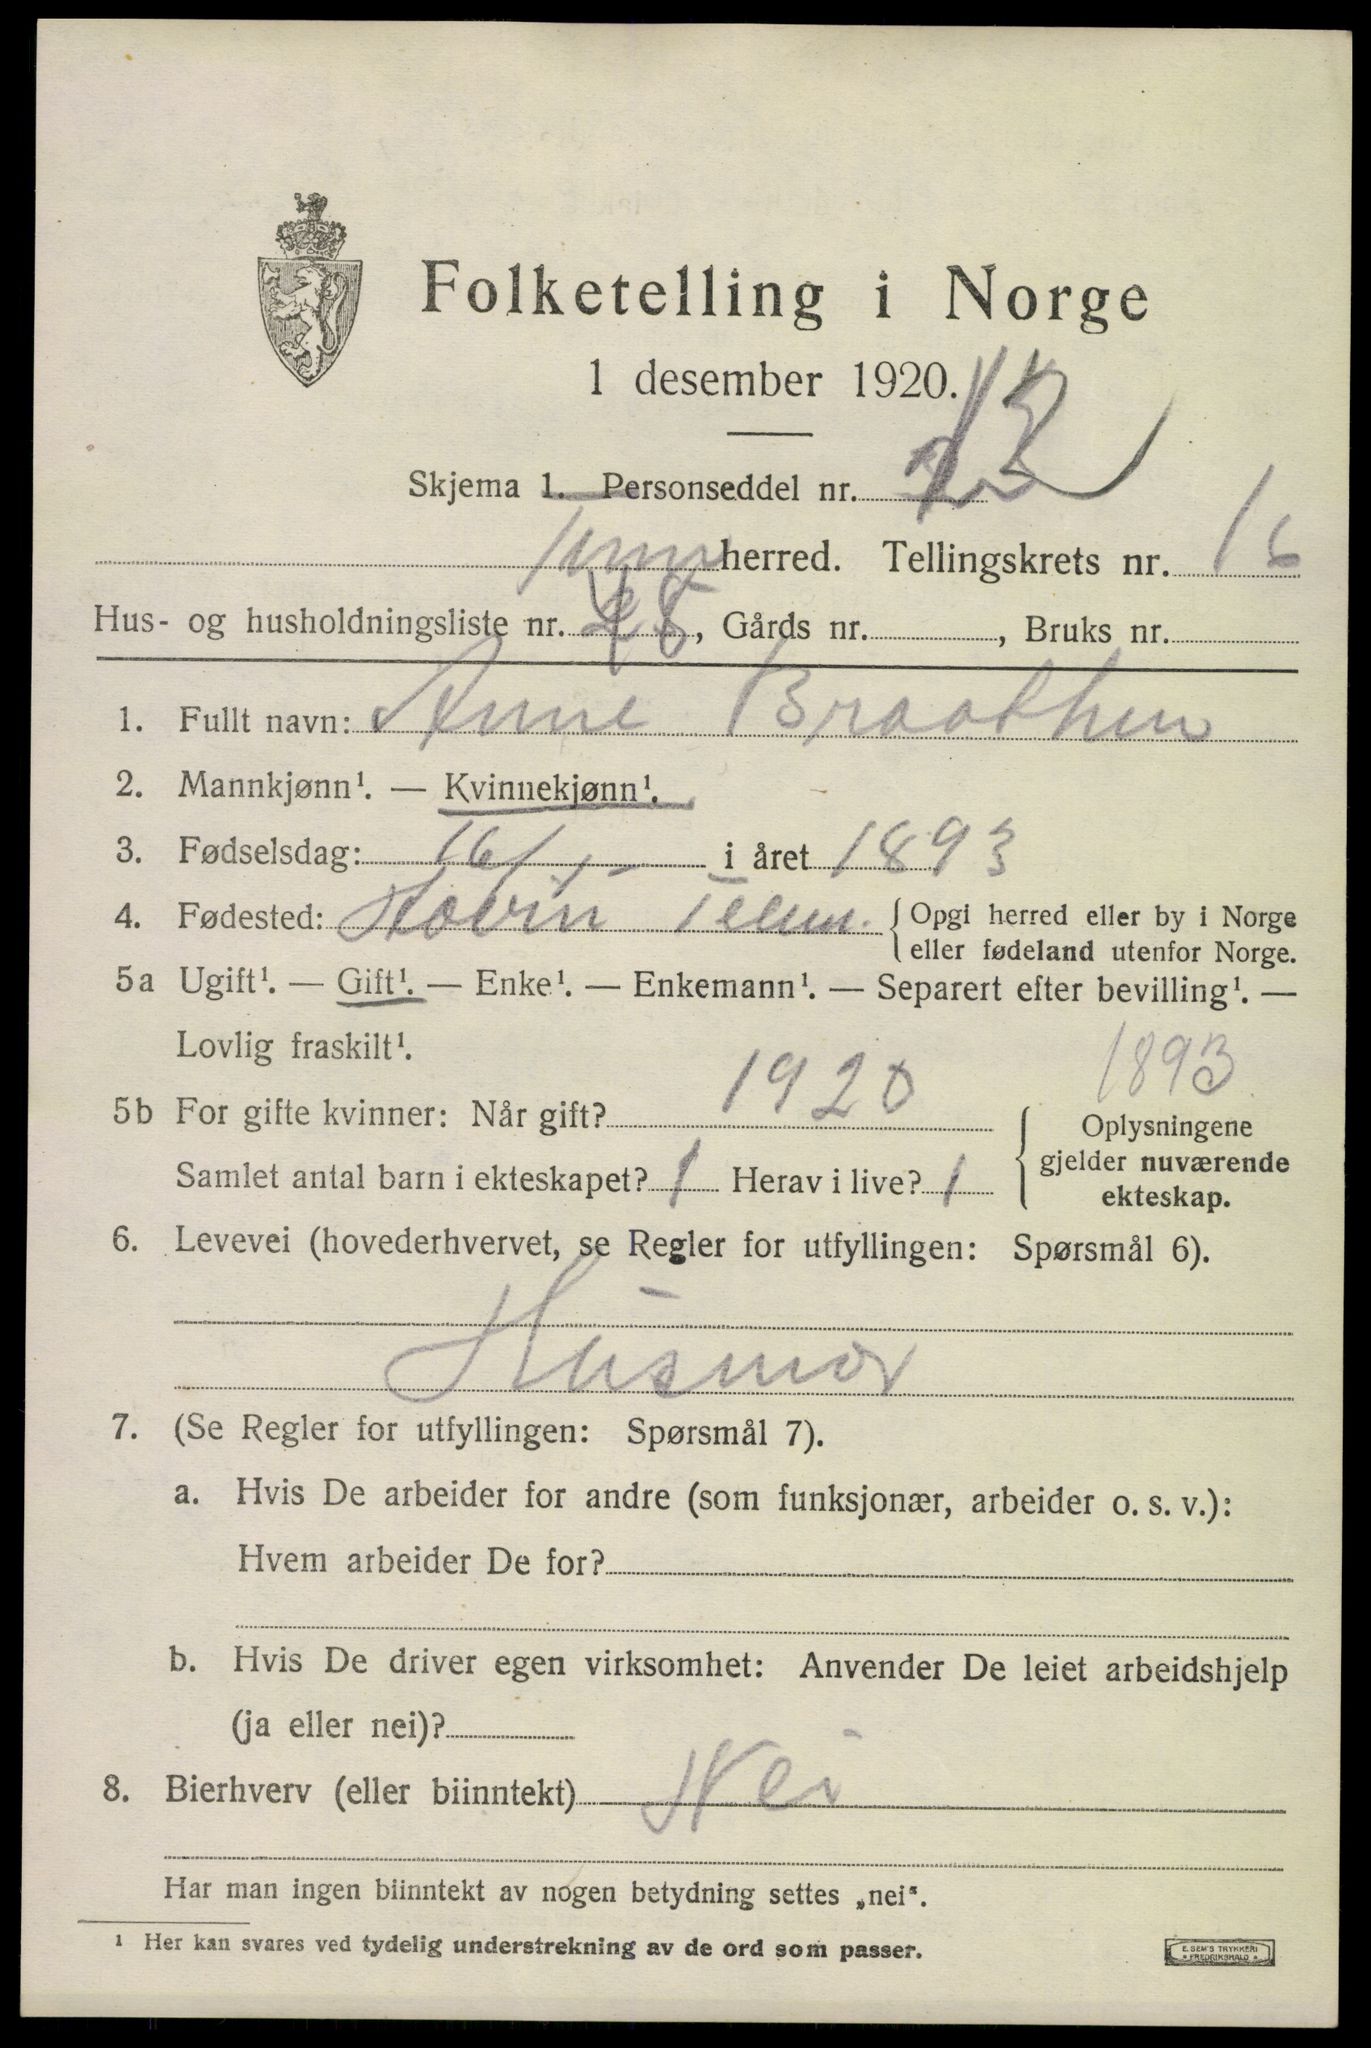 Folketelling i Norge
1 desember 1920.
Skjema 1. Personseddel nr.
herred. Tellingskrets nr. 16
Hus- og husholdningsliste nr. , Gårds nr. , Bruks nr.
1. Fullt navn: Anne Braathen
2. Mannkjønn¹. — Kvinnekjønn¹.
3. Fødselsdag: 16/1 - i året 1893
4. Fødested: Hovin Telem. {Opgi herred eller by i Norge
eller fødeland utenfor Norge.
5a Ugift¹. — Gift¹. — Enke¹. — Enkemann¹. — Separert efter bevilling¹. —
Lovlig fraskilt¹.
1893
5b For gifte kvinner: Når gift? 1920
Samlet antal barn i ekteskapet? 1 Herav i live? 1
Oplysningene
gjelder nuværende
ekteskap.
6. Levevei (hovederhvervet, se Regler for utfyllingen: Spørsmål 6).
Husmor
7. (Se Regler for utfyllingen: Spørsmål 7).
a. Hvis De arbeider for andre (som funksjonær, arbeider o. s. v.):
Hvem arbeider De for?
b. Hvis De driver egen virksomhet: Anvender De leiet arbeidshjelp
(ja eller nei)?
8. Bierhverv (eller biinntekt) Nei
Har man ingen biinntekt av nogen betydning settes „nei".
¹ Her kan svares ved tydelig understrekning av de ord som passer.
E. SEM'S TRYKKERI
* FREDRIKSHALD *